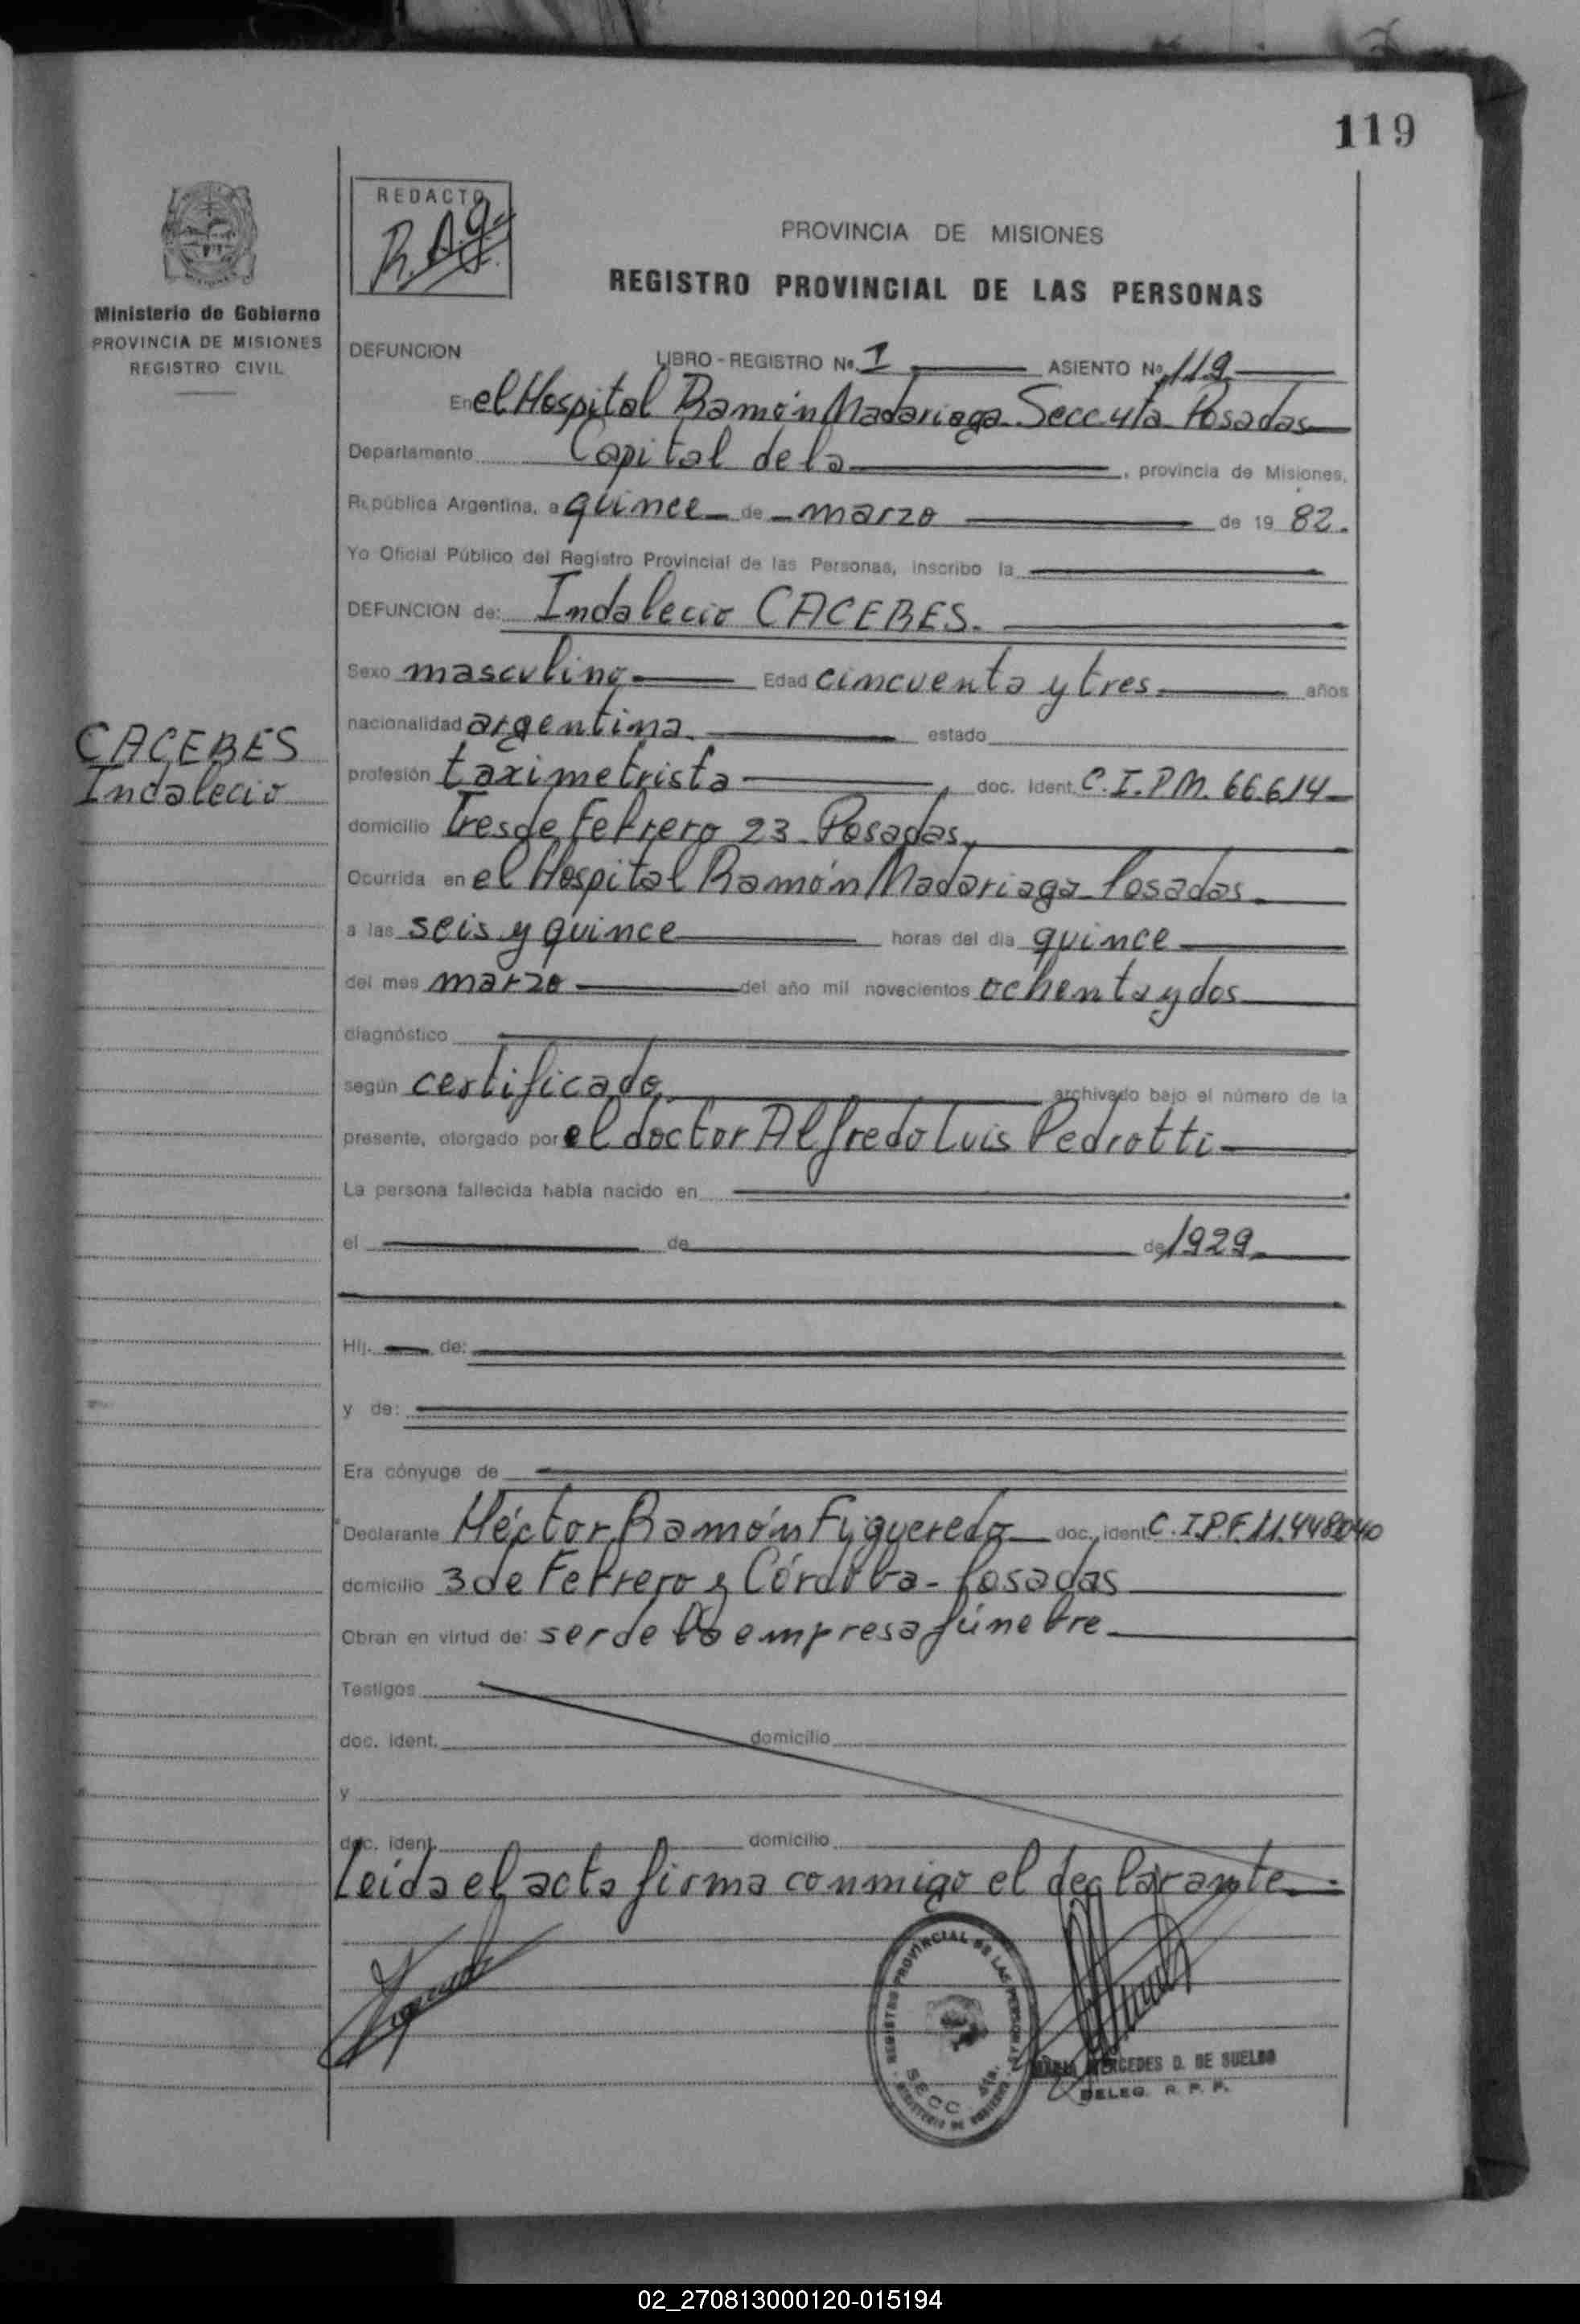 119
REDACTO
R.A.g.
PROVINCIA DE MISIONES
REGISTRO PROVINCIAL DE LAS PERSONAS
Ministerio de Gobierno
PROVINCIA DE MISIONES
REGISTRO CIVIL
DEFUNCION LIBRO - REGISTRO No. I ASIENTO No. 119
En el Hospital Ramón Madariaga Secc 4ta Posadas
Departamento Capital de la , provincia de Misiones,
República Argentina, a quince de marzo de 19 82.
Yo Oficial Público del Registro Provincial de las Personas, inscribo la
DEFUNCION de: Indalecio CACERES.
Sexo masculino Edad cincuenta y tres años
nacionalidad argentina estado
CACERES
Indalecio
profesión taximetrista , doc. Ident. C.I.P.M. 66.614
domicilio Tres de Febrero 23 Posadas
Ocurrida en el Hospital Ramón Madariaga Posadas
a las seis y quince horas del día quince
del mes marzo del año mil novecientos ochenta y dos
diagnóstico
según certificado archivado bajo el número de la
presente, otorgado por el doctor Alfredo Luis Pedrotti
La persona fallecida había nacido en
el de de 1929
Hij. de:
y de:
Era cónyuge de
Declarante Héctor Ramón Figueredo doc. ident. C.I.P.F.
domicilio 3 de Febrero y Córdoba - Posadas
Obran en virtud de: ser de la empresa fúnebre
Testigos
doc. ident. domicilio
y
doc. ident. domicilio
Leida el acta firma conmigo el declarante
REGISTRO PROVINCIAL DE LAS PERSONAS
SECC. 4ta.
MINISTERIO DE GOBIERNO
MARIA MERCEDES D. DE SUELDO
DELEG. R. P. P.
02_270813000120-015194